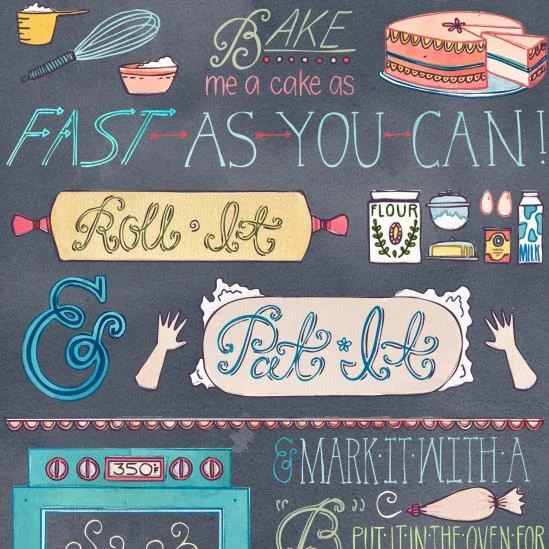 BAKE
me a cake as
FAST AS YOU CAN!
Roll It
FLOUR
MILK
&
Pat It
350°
& MARK IT WITH A
"B"
PUT IT IN THE OVEN FOR